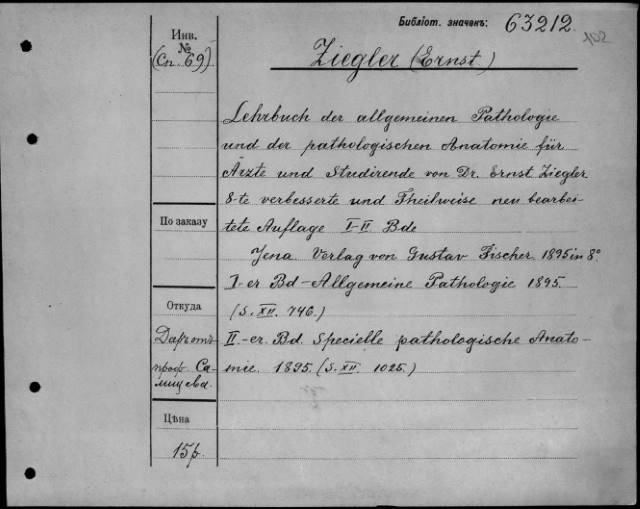 Библіот. значекъ: 63212.
102
Инв.
№
(Сп. 69)
Ziegler (Ernst.)
Lehrbuch der allgemeinen Pathologie
und der pathologischen Anatomie für
Ärzte und Studirende von Dr. Ernst Ziegler
8-te verbesserte und Theilweise neu bearbei-
tete Auflage I-II Bde
Jena. Verlag von Gustav Fischer. 1895 in 8°
I-er Bd - Allgemeine Pathologie 1895.
(S. XII. 746.)
II.-er. Bd. Specielle pathologische Anato-
mie. 1895. (S. XII. 1025.)
По заказу
Откуда
Даръ отъ
проф. Са-
мицева.
Цѣна
15 р.